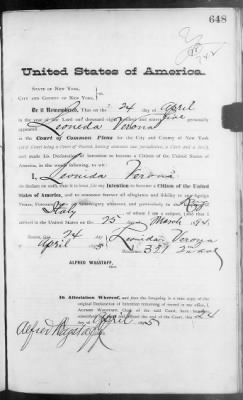 648
United States of America.
STATE OF NEW YORK,
CITY AND COUNTY OF NEW YORK, } ss.
Be it Remembered, That on the 24 day of April
in the year of our Lord one thousand eight hundred and ninety five personally
appeared Leonida Verona
in the Court of Common Pleas for the City and County of New York
(said Court being a Court of Record, having common law jurisdiction, a Clerk and a Seal),
and made his Declaration of Intention to become a Citizen of the United States
of America, in the words following, to wit:
I, Leonida Verona
do declare on oath, that it is bona fide my Intention to become a Citizen of the United
States of America, and to renounce forever all allegiance and fidelity to any foreign
Prince, Potentate, State or Sovereignty whatever, and particularly to the King
Italy of whom I am a subject, and that I
arrived in the United States on the 25 day of March
Sworn, this 24 day
April
Leonida Verona
ALFRED WAGSTAFF,
Clerk.
In Attestation Whereof, and that the foregoing is a true copy
of the original Declaration of Intention remaining of record in my office, I
ALFRED WAGSTAFF, Clerk of the said Court, have hereunto
subscribed my name and affixed the seal of the said Court, this 24
April
Alfred Wagstaff